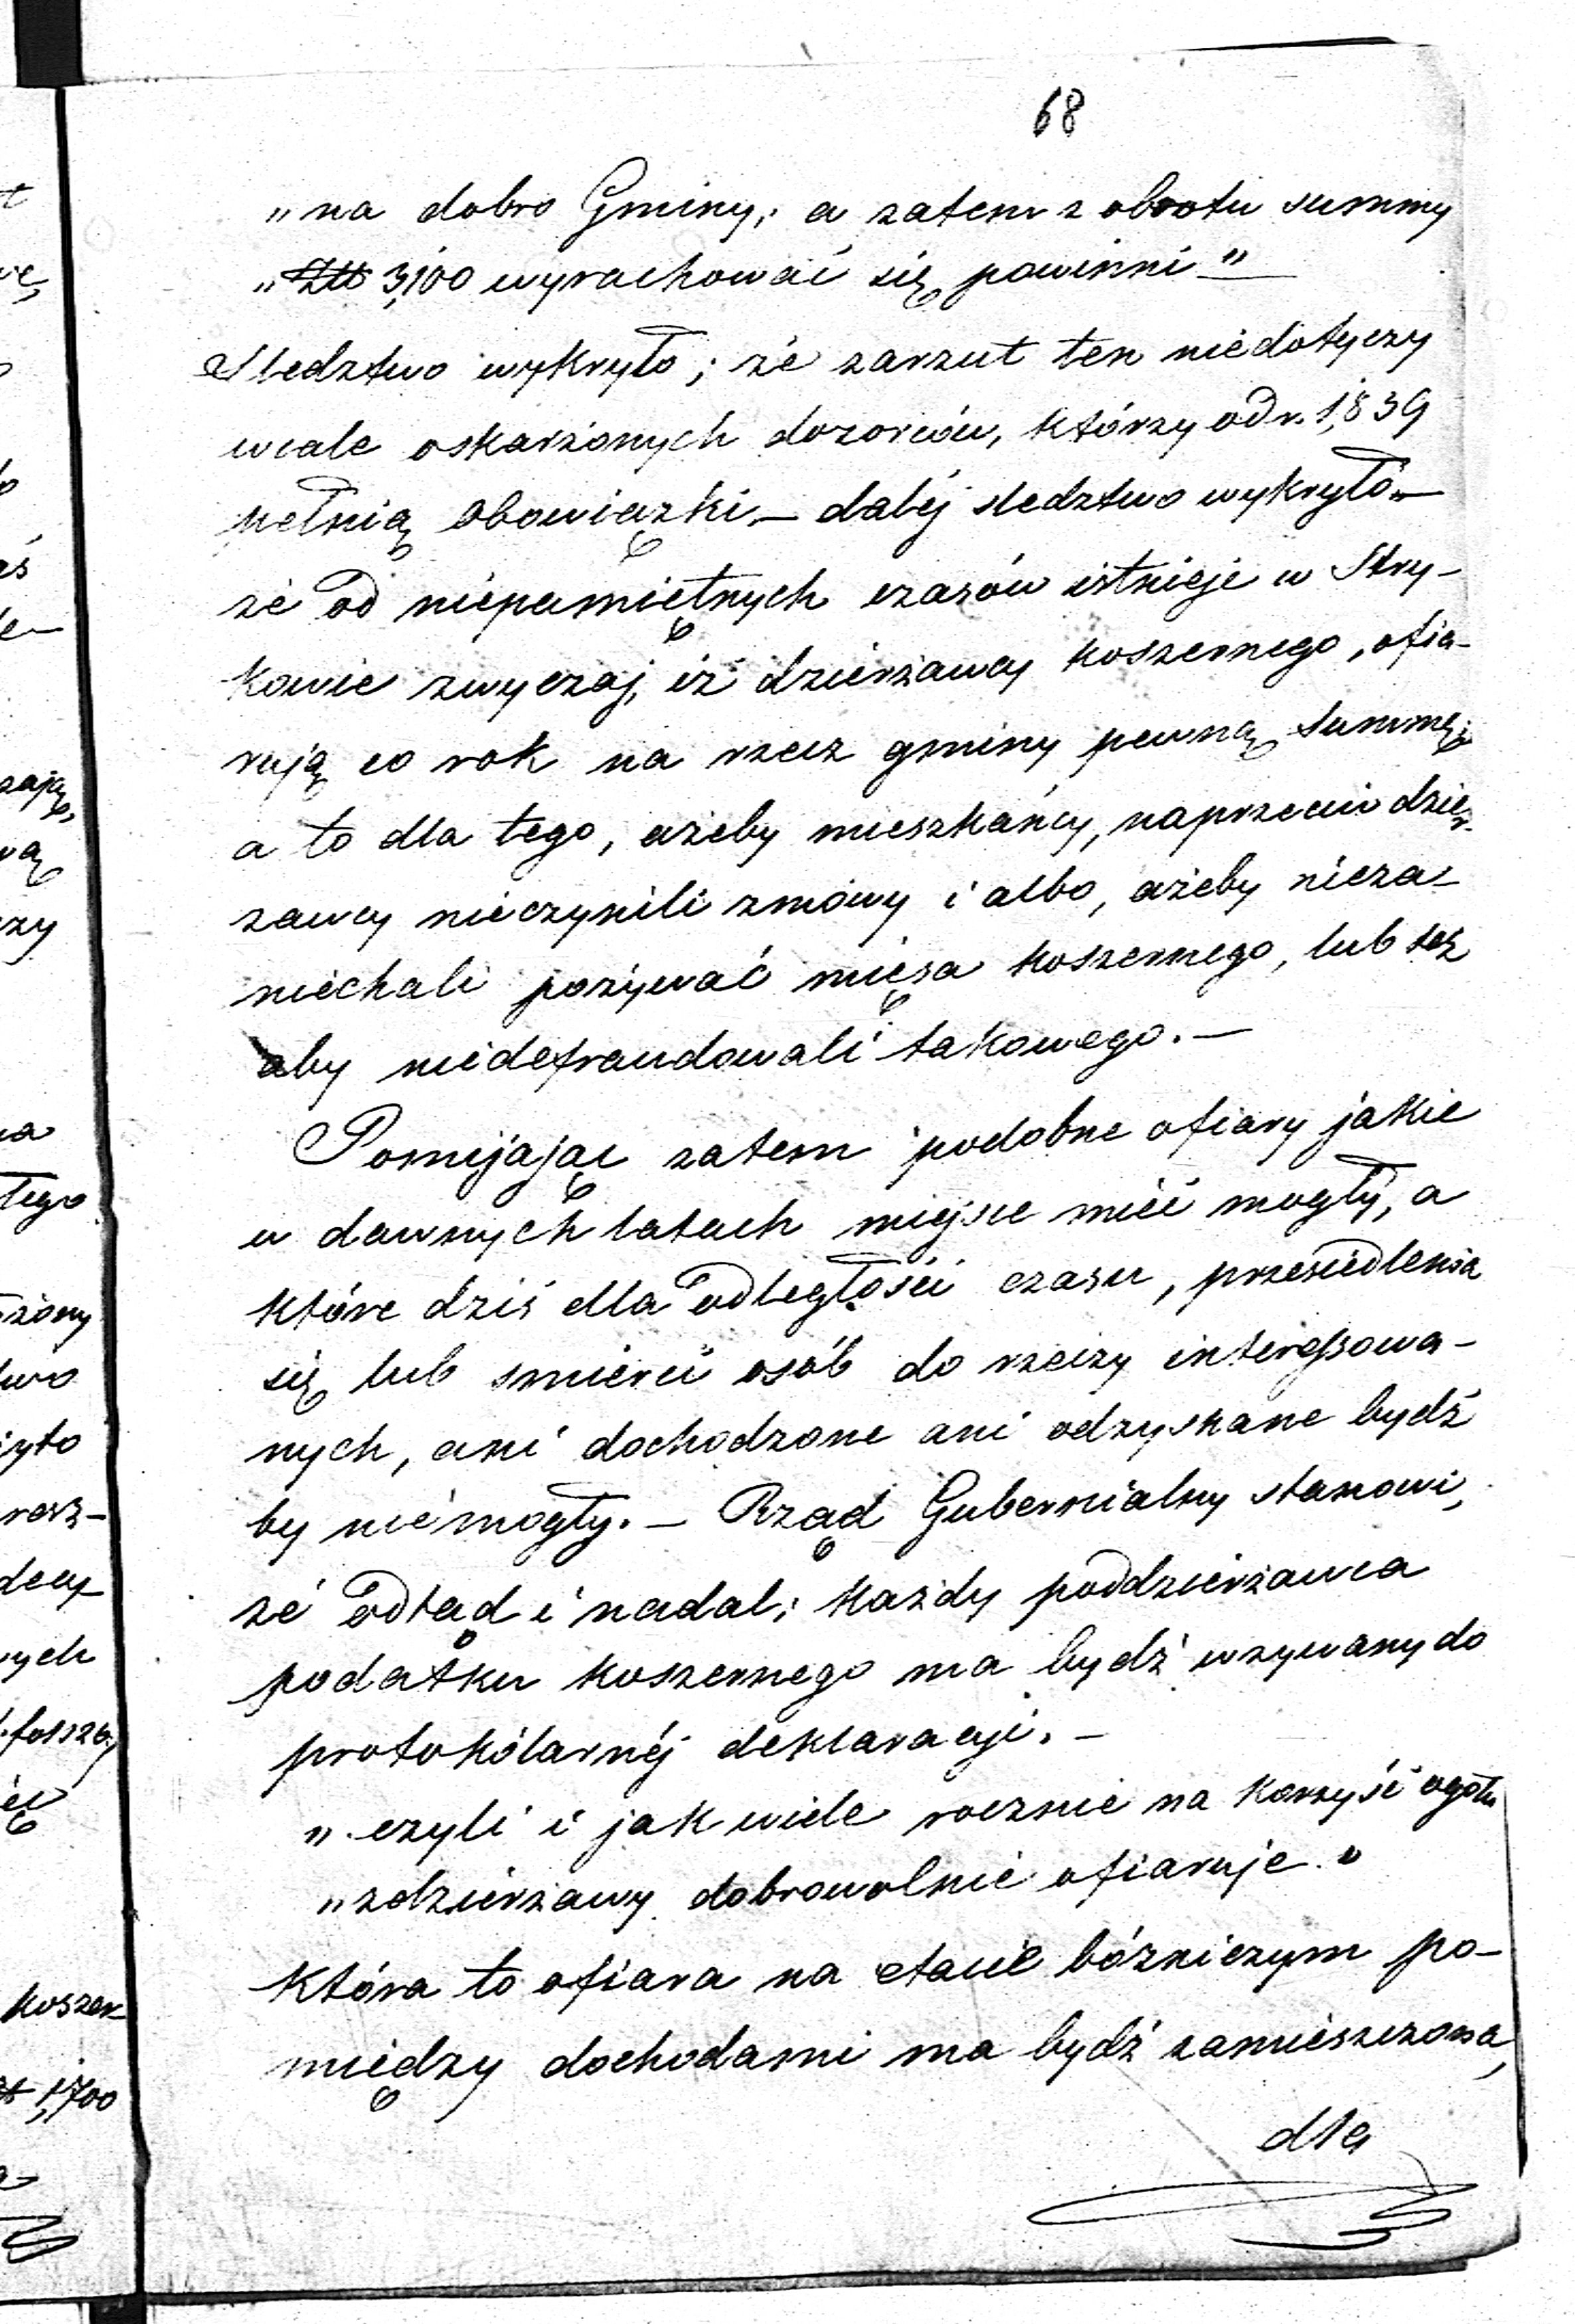 68
„na dobro Gminy; a zatem z obrotu summy
„Złt 3,100 wyrachować się powinni"
Sledztwo wykryło; że zarzut ten niedotyczy
wcale oskarżonych dozorców, którzy od r. 1,839
pełnią obowiązki.— daléj sledztwo wykryło—
że od niepamiętnych czasów istnieje w Stry-
kowie zwyczaj, iż dzierżawcy koszernego, ofia-
rują co rok na rzecz gminy pewną summę;
a to dla tego, ażeby mieszkańcy, naprzeciw dzier-
żawcy nieczynili zmowy i albo, ażeby nieza-
niechali pożywać mięsa koszernego, lub też
aby niedefraudowali takowego.—
Pomijając zatem podobne ofiary jakie
w dawnych latach miejsce mieć mogły, a
które dziś dla odległości czasu, przesiedlenia
się lub smierci osób do rzeczy interessowa-
nych, ani dochodzone ani odzyskane bydź
by niemogły.— Rząd Gubernialny stanowi,
że odtąd i nadal; każdy poddzierżawca
podatku koszernego ma bydź wzywany do
protokólarnéj deklaracyi.—
„czyli i jak wiele rocznie na korzyść ogółu
„zdzierżawy dobrowolnie ofiaruje."
Która to ofiara na etacie bóżniczym po-
między dochodami ma bydź zamieszczona,
dla